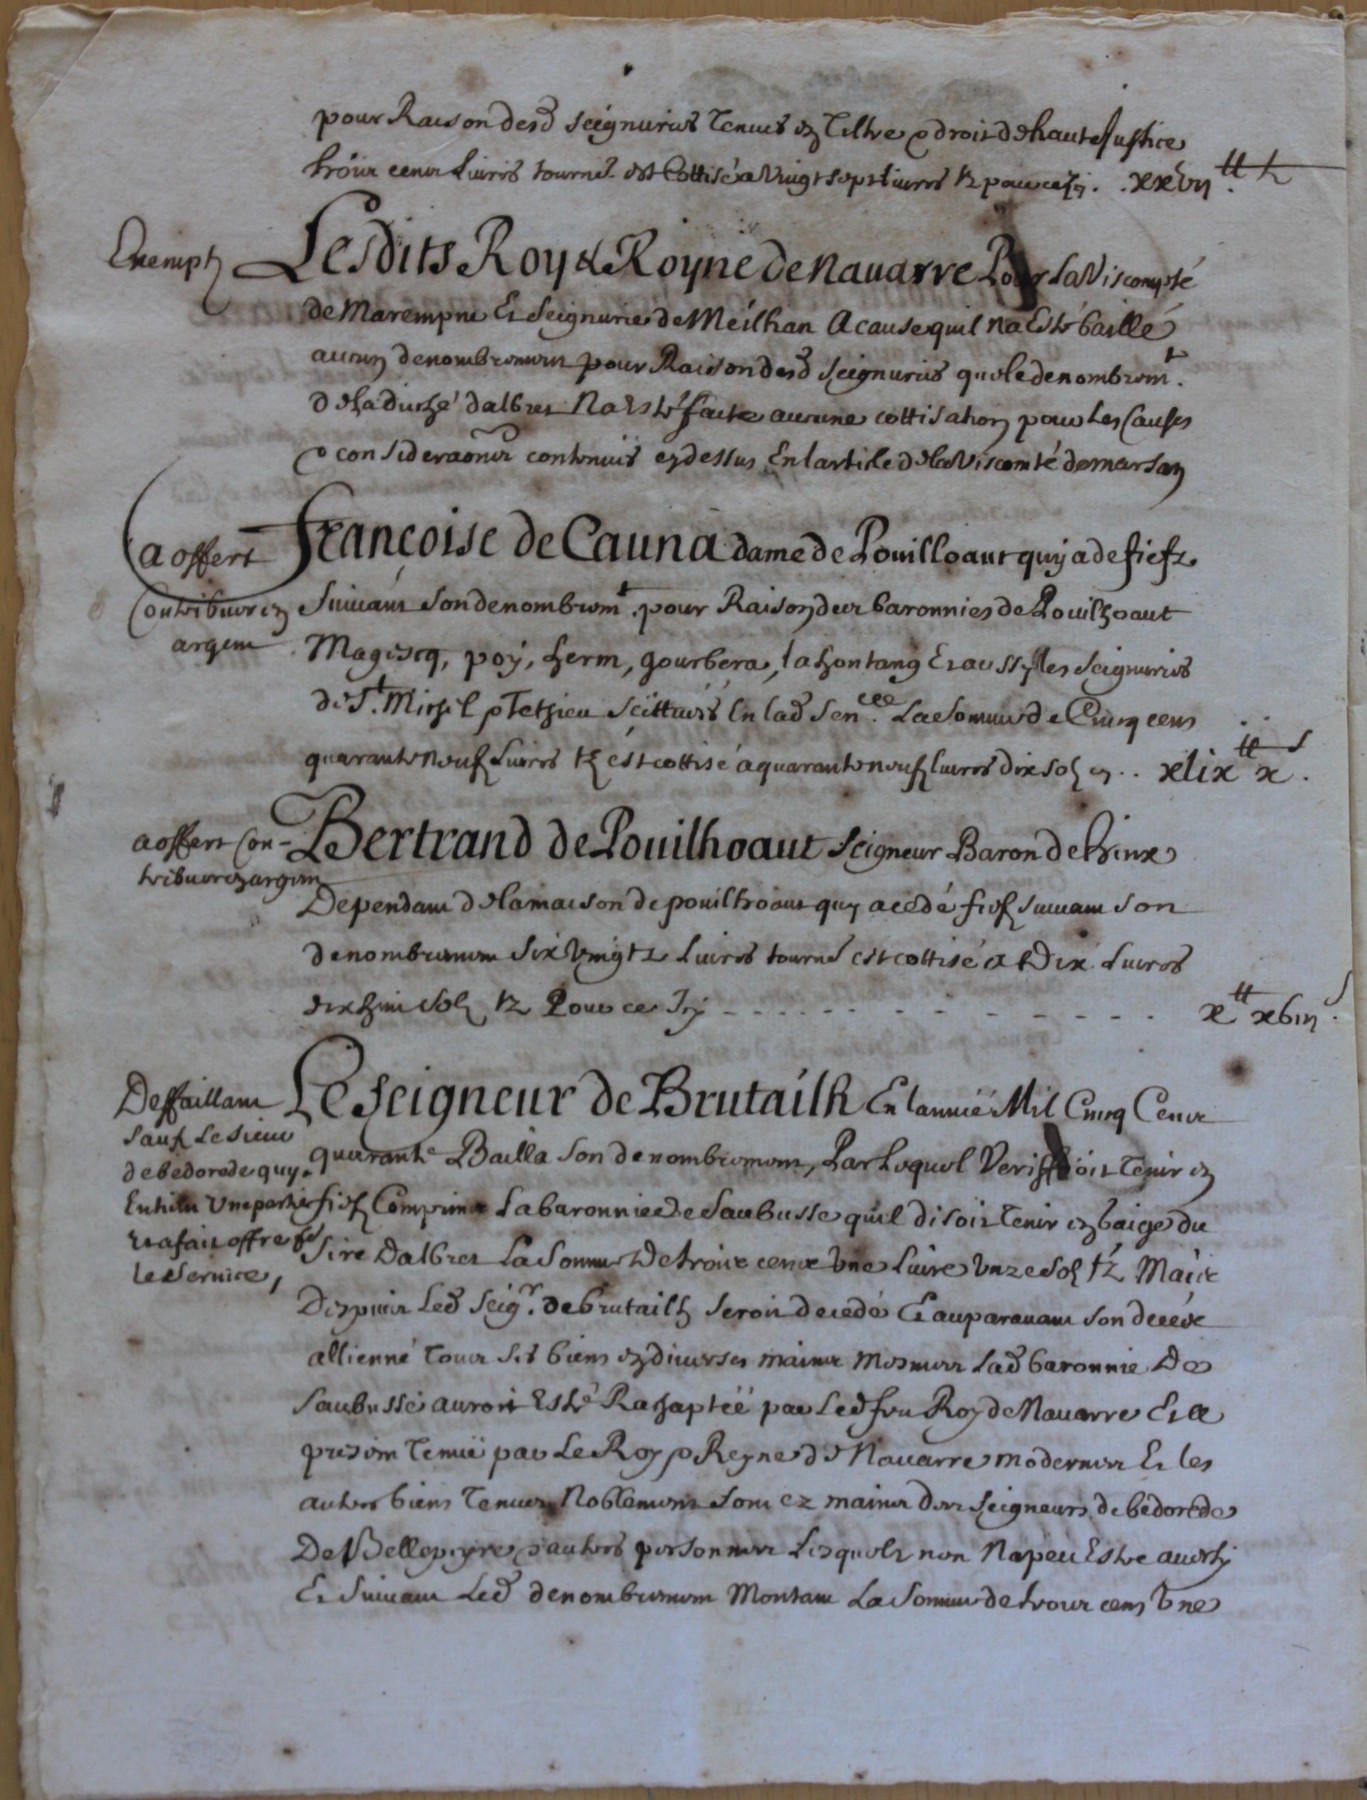 pour Raison desd seigneuries tenues en tiltre & droit de haute Justice
trois cens Livres tournes. est Cottisé a Vingt sept livres tz pour ce Icy. . xxvii ₶ tz
Exempt Lesdits Roy & Royne de Nauarre Pour La Viscompté
de Marempne Et Seigneurie de Meilhan A cause quil na Esté baillé
aucun denombrement pour Raison desd seigneuries que le denombremt.
de la duché dalbret Na Esté faite aucune cottisation pour Les Causes
& consideraonz contenuës cy dessus En larticle de la Viscomté de marsan
a offert Françoise de Cauna dame de Pouilloaut quy a de fiefz
Contribuer en Suiuant son denombremt. pour Raison des baronnies de Pouilhoaut
argent Magescq, poy, herm, gourbera, lahontang Et aussy les seigneuries
de St. Michel & Tethieu Scittuées En lad Sencee. La Somme de Cincq cens
quarante neuf Liures tz est cottisé a quarante neuf liures dix solz cy . . xlix ₶ x s.
a offert Con- Bertrand de Pouilhoaut Seigneur Baron de hinx
tribuer en argent
Dependant de la maison de pouilhoaut quy a cedé fief suiuant son
denombrement Six Vingtz Liures tournes est cottisé a Dix Liures
dix huit solz tz Pour ce Icy - - - - - - - - - - x ₶ xviii s.
Deffaillant Le Seigneur de Brutailh En lannée Mil Cincq Cens
sauf Le sieur quarante Bailla son denombrement, Par Lequel Verisfioit Tenir en
de bedorede quy
En tien Vne partie fief Comprins La baronnie de Saubusse quil disoit tenir en baige du
Et a fait offre fe
Sire Dalbret La Somme de trois cens Vne Liure Vnze Solz tz Mais
le Seruice,
Despuis Led Seigr. de brutailh seroit decedé Et auparauant son decés
allienné tous ses biens en diuerses mains mesmes lad baronnie De
Saubusse auroit Esté Rachaptéë par Led feu Roy de Nauarre Et a
present tenuë par Le Roy & Reyne de Nauarre modernes Et les
autres biens tenus Noblement sont ez mains des seigneurs de bedorede
De Bellepeyre & autres personnes Lesquels non Napeu Estre auerty
Et Suiuant Led denombrement Montant La Somme de trois cens Vne